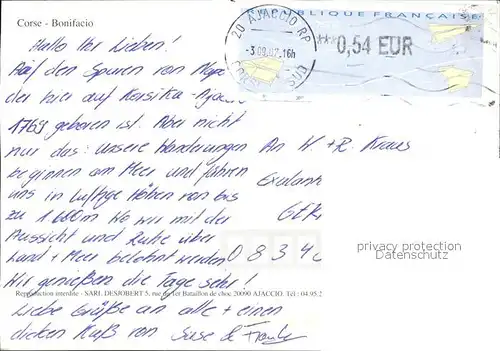 Corse - Bonifacio
RÉPUBLIQUE FRANÇAISE
20 AJACCIO RP
-3.09.07.16h
CORSE SUD
***0,54 EUR
Hallo Ihr Lieben!
Auf den Spuren von
der hier auf Korsika - Ajaccio
1769 geboren ist. Aber nicht
nur das: unsere Wanderungen
beginnen am Meer und führen
uns in luftige Höhen von bis
zu 1600m Wo wir mit der
Aussicht und Ruhe über
Land + Meer belohnt werden
Wir genießen die Tage sehr!
Liebe Grüße an alle + einen
dicken Kuß von Suse &
An H + R. Kraus
GER
0 8 3 4
privacy protection
Datenschutz
Reproduction interdite - SARL DESJOBERT 5, rue du 1er Bataillon de choc 20090 AJACCIO. Tél : 04.95.2